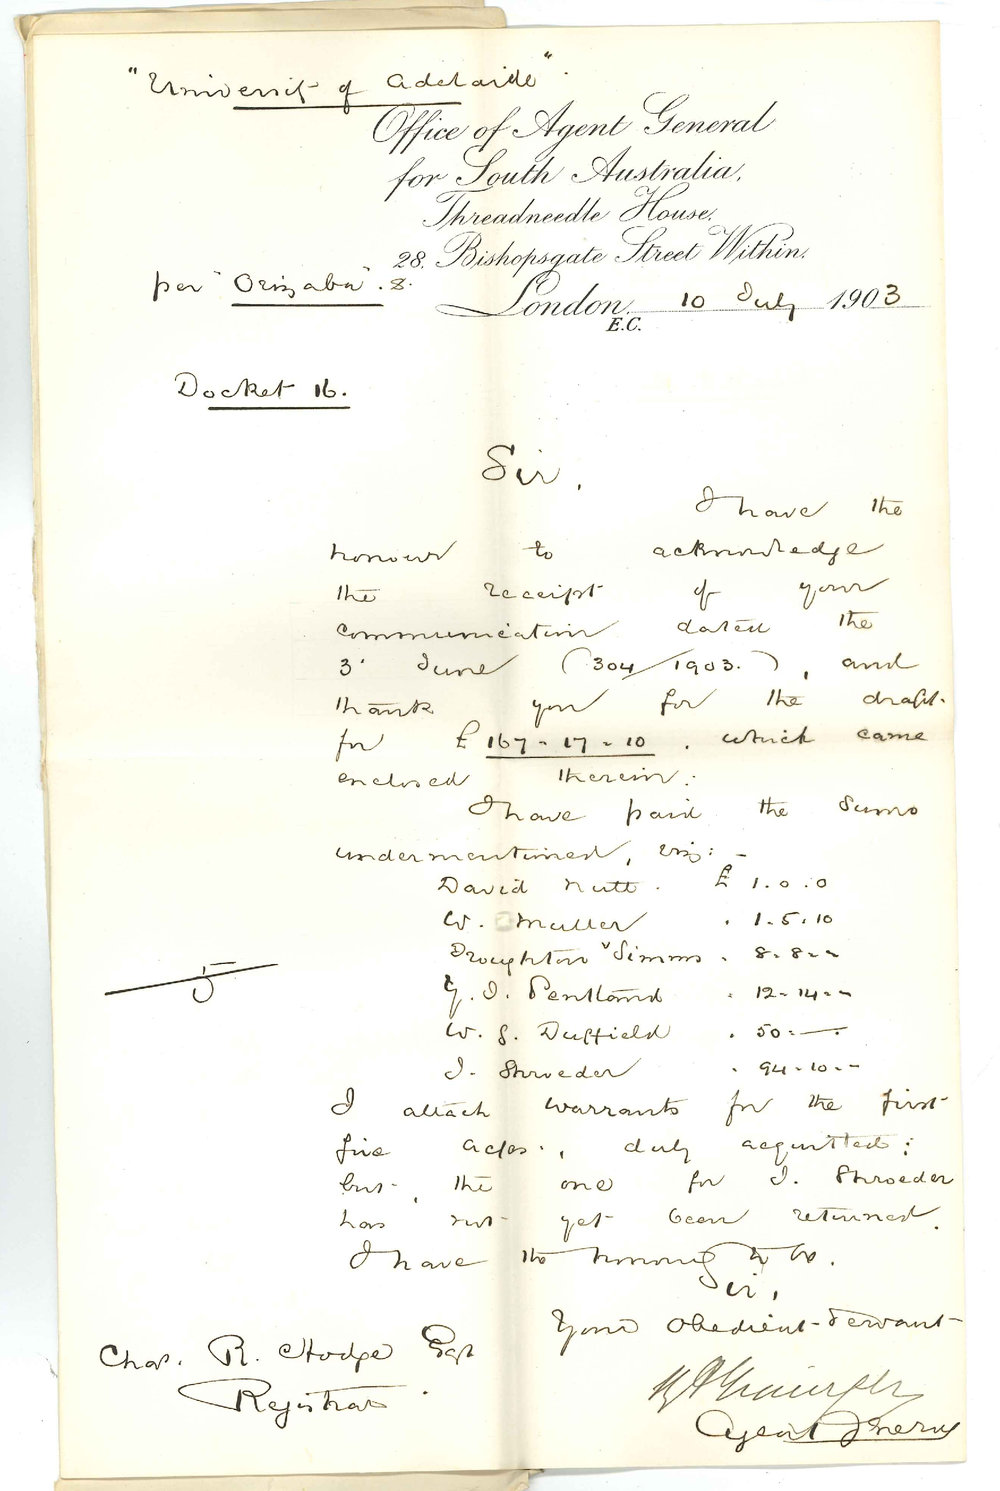 "University of Adelaide".
Office of Agent General
for South Australia,
Threadneedle House,
28, Bishopsgate Street Within,
per "Orizaba". 8.
London, 10 July 1903
E.C.
Docket 16.
Sir,
I have the
honour to acknowledge
the receipt of your
communication dated the
3' June (304/1903.), and
thank you for the draft
for £167-17-10, which came
enclosed therein:
I have paid the sums
undermentioned, viz: -
David Nutt. £ 1.0.0
W. Muller . 1.5.10
Droughton & Simms . 8-8--
Y. J. Pentland . 12-14--
5
W. G. Duffield . 50-—-
J. Shroeder . 94-10--
I attach warrants for the first
five accts., duly acquitted;
but, the one for J. Shroeder
has not yet been returned.
I have the honour to be.
Sir,
Your obedient Servant
Chas. R. Hodge Esqr
Registrar.
Agent General